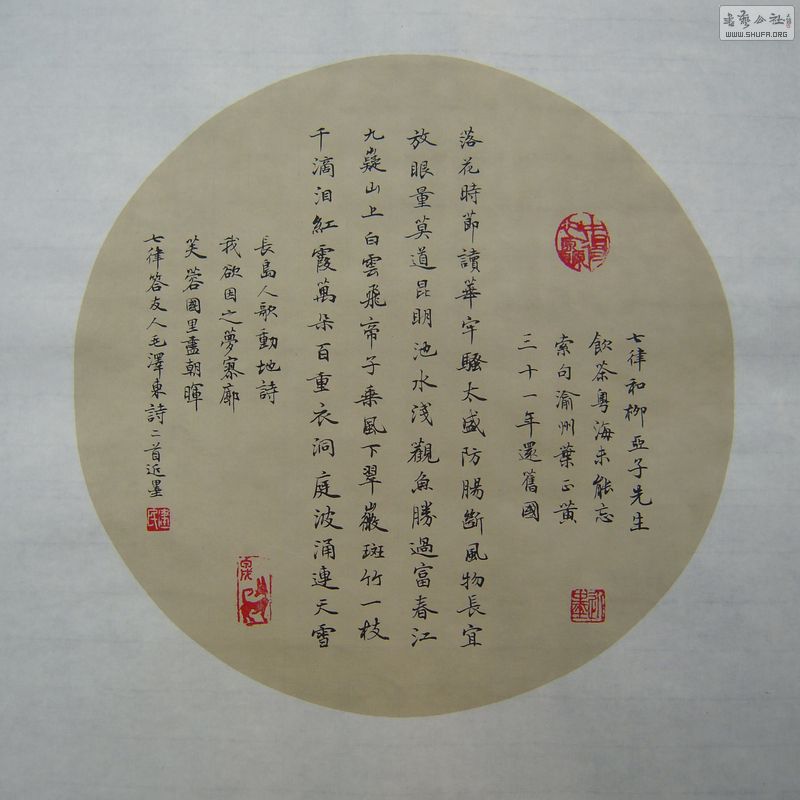 七律和柳亞子先生
飲茶粵海未能忘
索句渝州葉正黃
三十一年還舊國
落花時節讀華章牢騷太盛防腸斷風物長宜
放眼量莫道昆明池水淺觀魚勝過富春江
九嶷山上白雲飛帝子乘風下翠巖斑竹一枝
千滴泪紅霞萬朵百重衣洞庭波涌連天雪
長島人歌動地詩
我欲因之夢寥廓
芙蓉國里盡朝暉
七律答友人毛澤東詩二首近墨
書藝公社
WWW.SHUFA.ORG